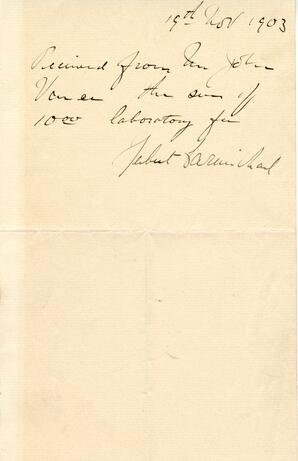 19th Nov 1903
Received from Mr John
the sum of
1000 laboratory fee
Carmichael